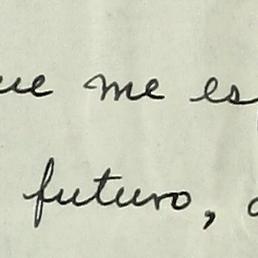 ue me es
futuro,